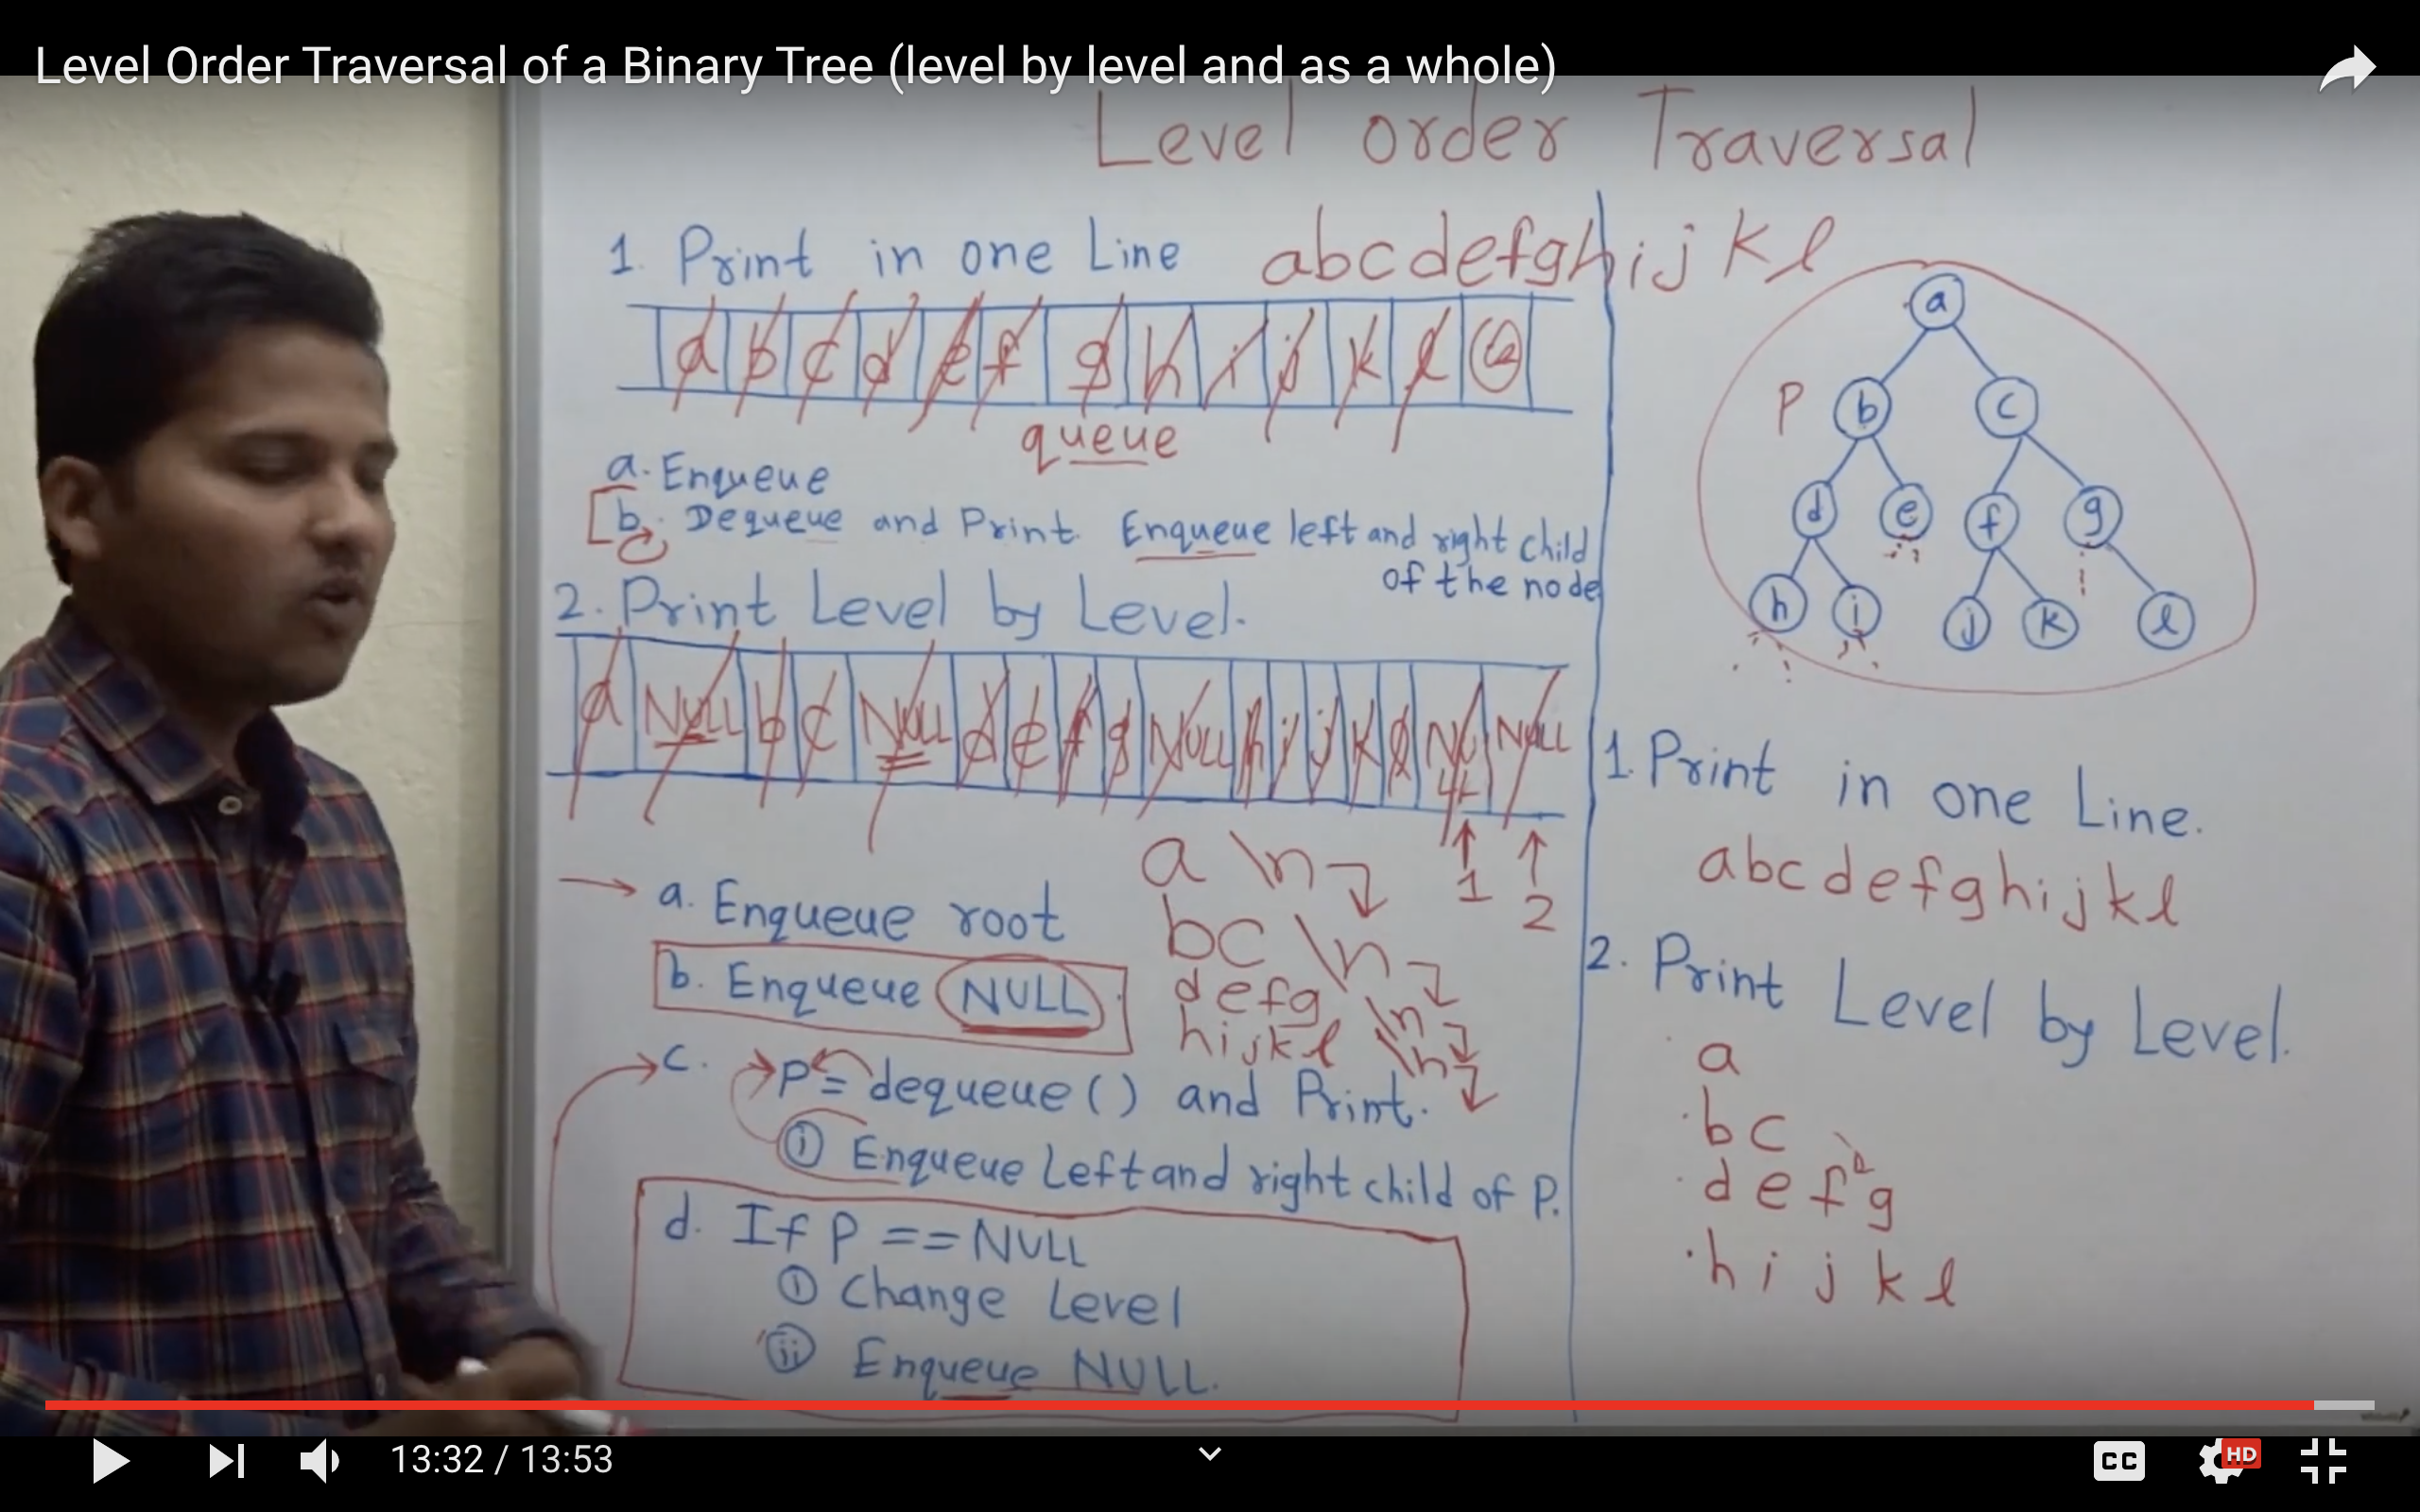 Level Order Traversal of a Binary Tree (level by level and as a whole)
Level order Traversal
1. Print in one Line abcdefghijkl
a b c d e f g h i j k l
queue
a. Enqueue
b. Dequeue and Print. Enqueue left and right child
of the node
2. Print Level by Level.
a NULL b c NULL d e f g NULL h i j k l NULL NULL
1
2
a \n
bc \n
defg \n
hijkl \n
a. Enqueue root
b. Enqueue NULL
c. P = dequeue() and Print.
i Enqueue Left and right child of P.
d. If P == NULL
i Change Level
ii Enqueue NULL.
a
P b c
d e f g
h i j k l
1. Print in one Line.
abcdefghijkl
2. Print Level by Level.
a
bc
d e f g
h i j k l
13:32 / 13:53
CC
HD